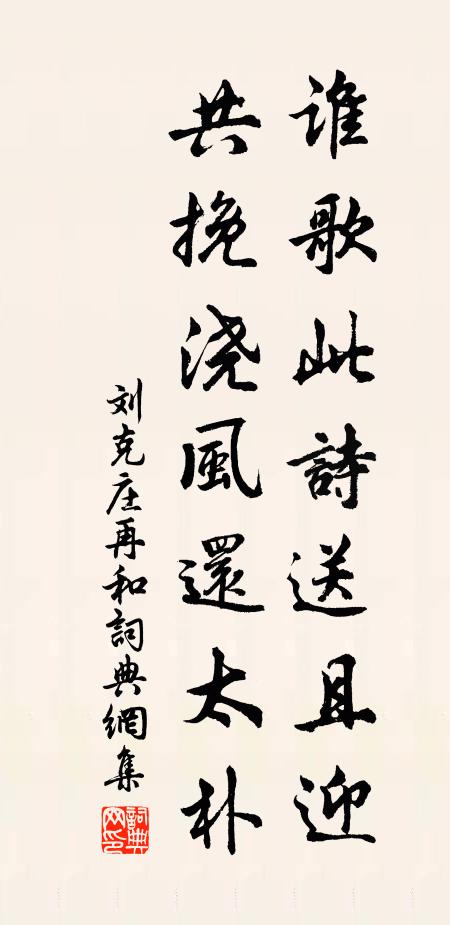 誰歌此詩送且迎
共挽浇風還太朴
刘克庄再和詞典網集
詞典网印